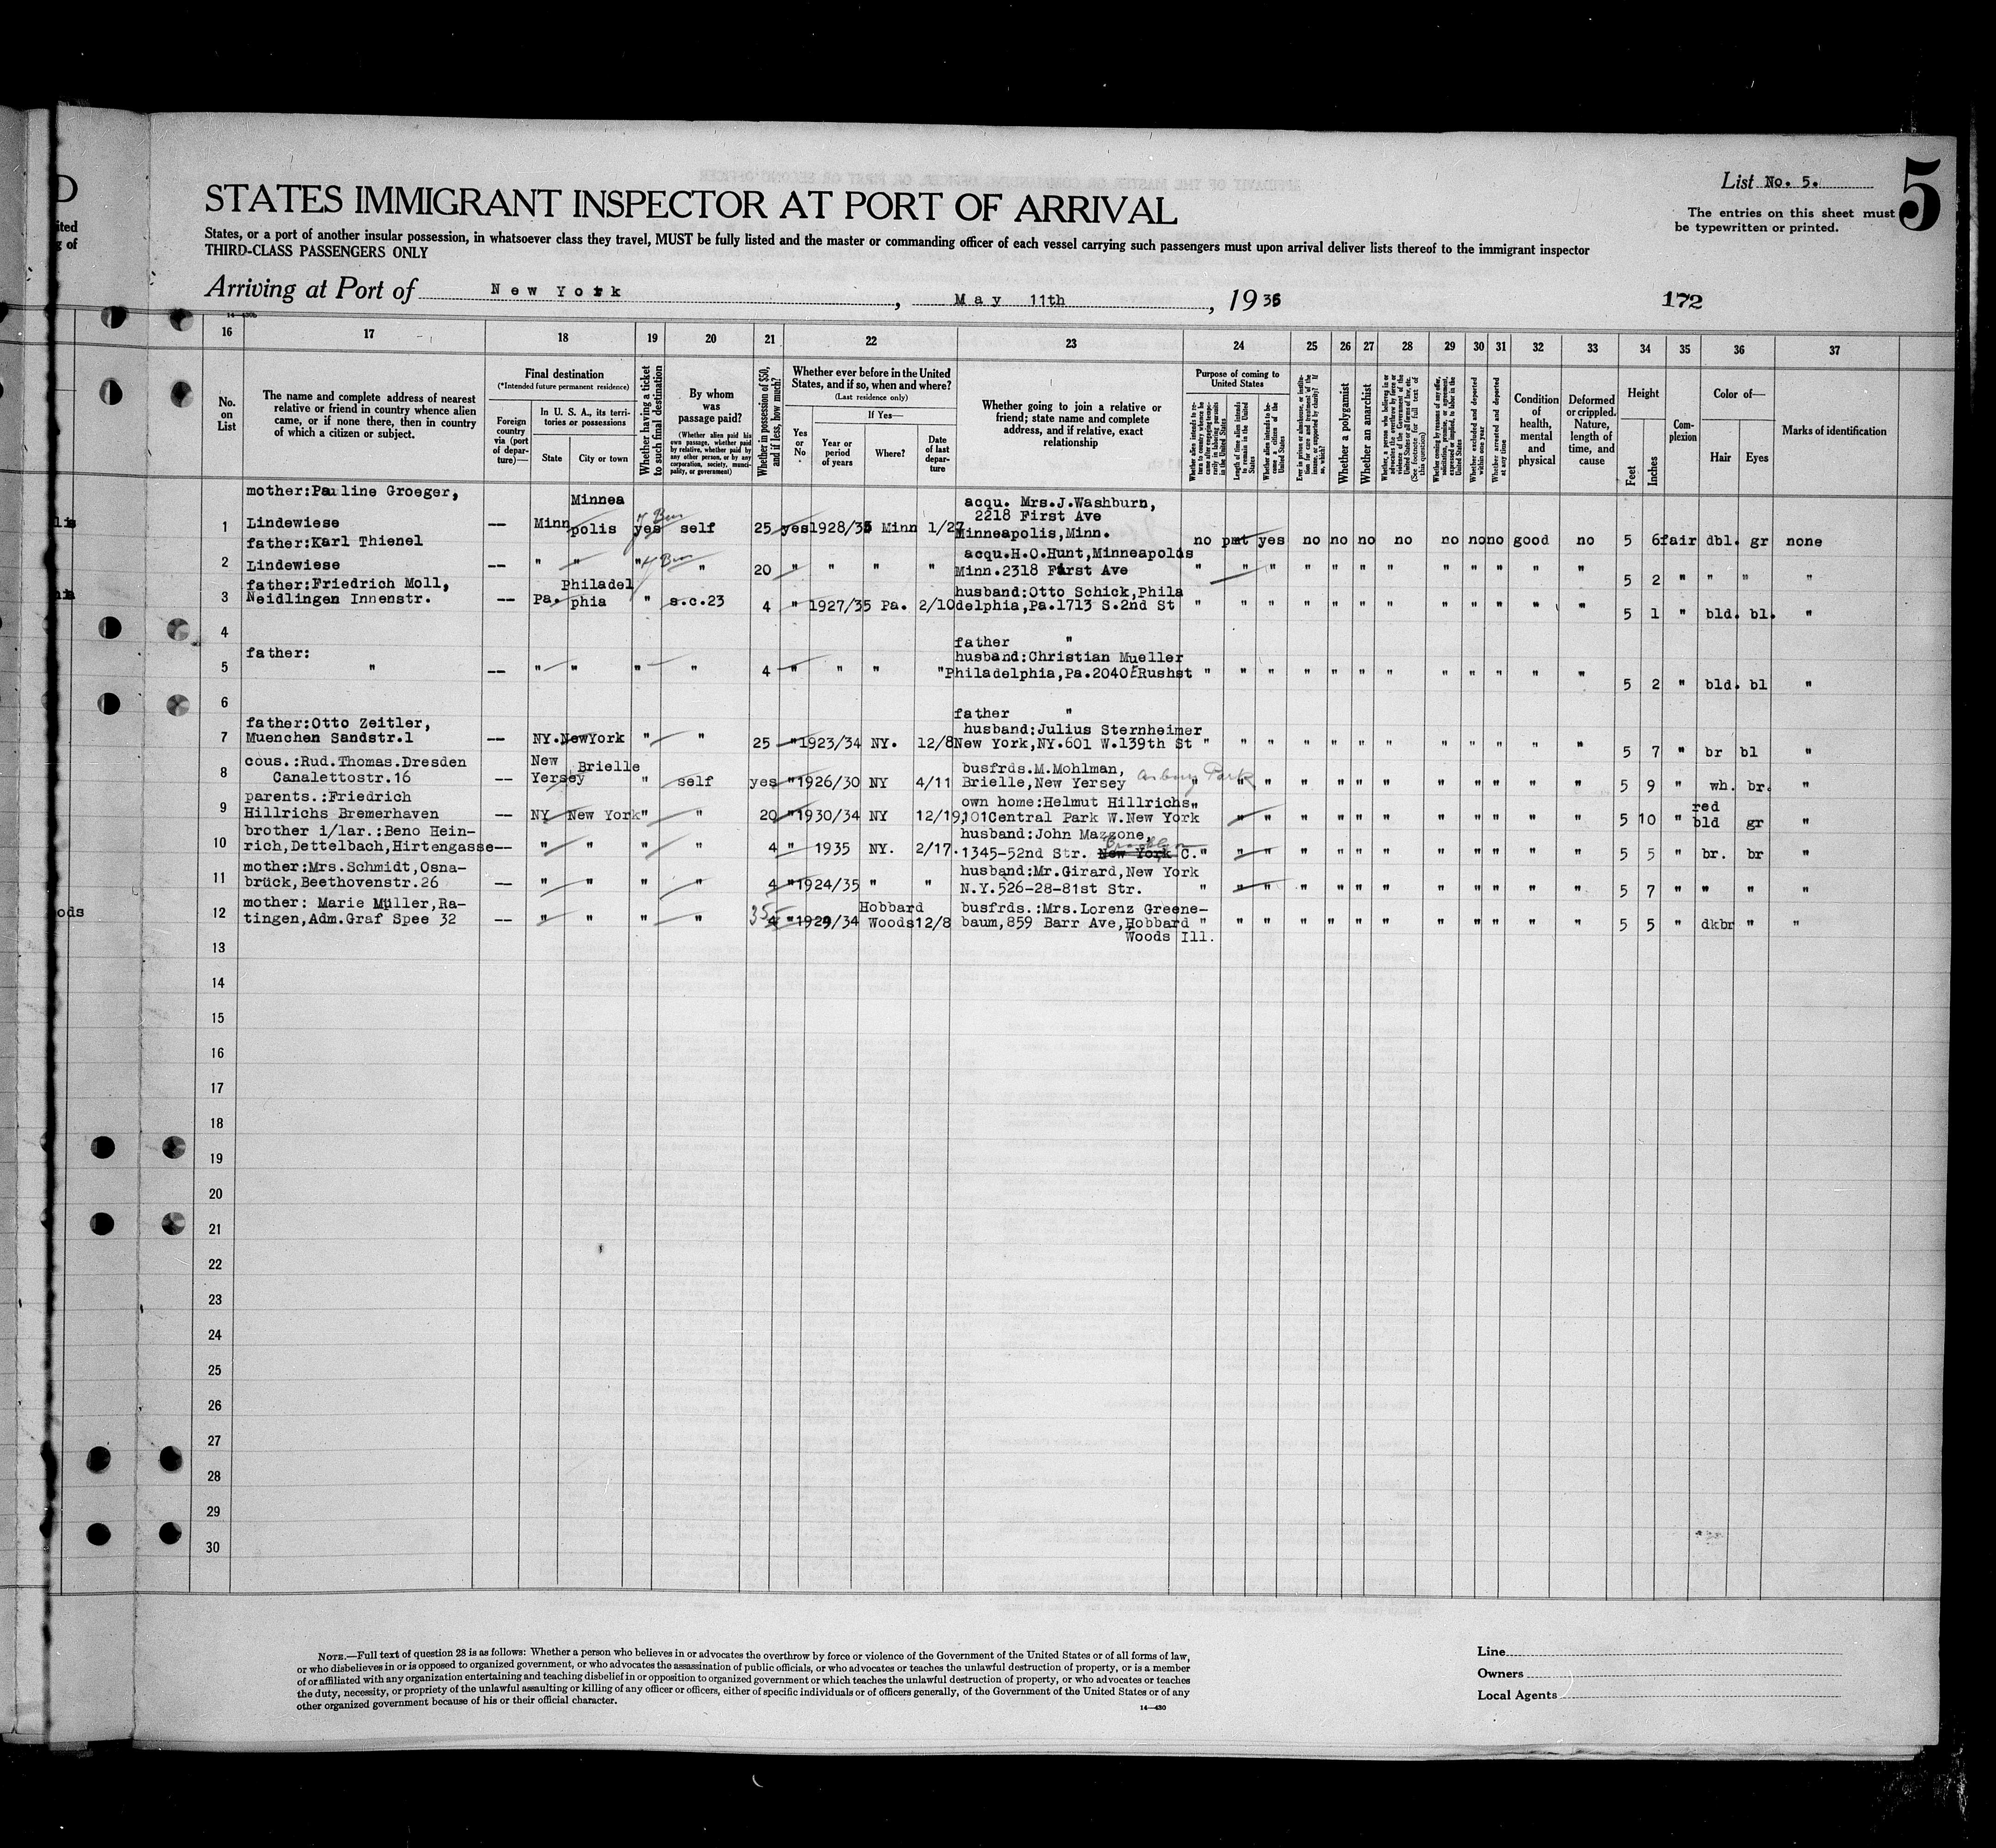 D
ited
g of
STATES IMMIGRANT INSPECTOR AT PORT OF ARRIVAL
List No. 5.
5
The entries on this sheet must
be typewritten or printed.
States, or a port of another insular possession, in whatsoever class they travel, MUST be fully listed and the master or commanding officer of each vessel carrying such passengers must upon arrival deliver lists thereof to the immigrant inspector
THIRD-CLASS PASSENGERS ONLY
Arriving at Port of New York, May 11th, 1935
172
16 17 18 19 20 21 22 23 24 25 26 27 28 29 30 31 32 33 34 35 36 37
No. on List
The name and complete address of nearest relative or friend in country whence alien came, or if none there, then in country of which a citizen or subject.
Final destination
(*Intended future permanent residence)
Foreign country via (port of departure)—
In U. S. A., its territories or possessions
State
City or town
Whether having a ticket to such final destination
By whom was passage paid?
(Whether alien paid his own passage, whether paid by relative, whether paid by any other person, or by any corporation, society, municipality, or government)
Whether in possession of $50, and if less, how much?
Whether ever before in the United States, and if so, when and where?
(Last residence only)
Yes or No
If Yes—
Year or period of years
Where?
Date of last departure
Whether going to join a relative or friend; state name and complete address, and if relative, exact relationship
Purpose of coming to United States
Length of time alien intends to remain in the United States
Whether alien intends to become a citizen of the United States
Whether a polygamist
Whether an anarchist
Whether excluded and deported within one year
Whether arrested and deported at any time
Condition of health, mental and physical
Deformed or crippled. Nature, length of time, and cause
Height
Feet
Inches
Complexion
Color of—
Hair
Eyes
Marks of identification
mother:Pauline Groeger, Minnea acqu. Mrs.J.Washburn,
2218 First Ave
1 Lindewiese -- Minn polis yes self 25 yes 1928/35 Minn 1/27 Minneapolis,Minn. no pmt yes no no no no no no no good no 5 6 fair dbl. gr none
father:Karl Thienel acqu.H.O.Hunt,Minneapolds
2 Lindewiese -- " " " " 20 " " " " Minn.2318 First Ave " " " " " " " " " " " " 5 2 " " " "
father:Friedrich Moll, Philadel husband:Otto Schick,Phila
3 Neidlingen Innenstr. -- Pa. phia " s.c.23 4 " 1927/35 Pa. 2/10 delphia,Pa.1713 S.2nd St " " " " " " " " " " " " 5 1 " bld. bl. "
4 father "
father: husband:Christian Mueller
5 " -- " " " " 4 " " " " Philadelphia,Pa.2040 Rushst " " " " " " " " " " " " 5 2 " bld. bl "
6 father "
father:Otto Zeitler, husband:Julius Sternheimer
7 Muenchen Sandstr.1 -- NY. NewYork " " 25 " 1923/34 NY. 12/8 New York,NY.601 W.139th St " " " " " " " " " " " " 5 7 " br bl "
cous.:Rud.Thomas.Dresden New Brielle busfrds.M.Mohlman,
8 Canalettostr.16 -- Yersey " self yes " 1926/30 NY 4/11 Brielle,New Yersey Asbury Park " " " " " " " " " " " " 5 9 " wh. br. "
parents.:Friedrich own home:Helmut Hillrichs red
9 Hillrichs Bremerhaven -- NY New York " " 20 " 1930/34 NY 12/19 101Central Park W.New York " " " " " " " " " " " 5 10 " bld gr "
brother i/lar.:Beno Hein- husband:John Mazzone, Brooklyn
10 rich,Dettelbach,Hirtengasse -- " " " " 4 " 1935 NY. 2/17. 1345-52nd Str. New York C. " " " " " " " " " " " " 5 5 " br. br "
mother:Mrs.Schmidt,Osna- husband:Mr.Girard,New York
11 brück,Beethovenstr.26 -- " " " " 4 " 1924/35 " " N.Y.526-28-81st Str. " " " " " " " " " " " " 5 7 " " " "
mother: Marie Müller,Ra- 35 Hobbard busfrds.:Mrs.Lorenz Greene-
12 tingen,Adm.Graf Spee 32 -- " " " " 4 " 1929/34 Woods 12/8 baum,859 Barr Ave,Hobbard " " " " " " " " " " " " 5 5 " dkbr " "
Woods Ill.
13
14
15
16
17
18
19
20
21
22
23
24
25
26
27
28
29
30
NOTE.—Full text of question 28 is as follows: Whether a person who believes in or advocates the overthrow by force or violence of the Government of the United States or of all forms of law,
or who disbelieves in or is opposed to organized government, or who advocates the assassination of public officials, or who advocates or teaches the unlawful destruction of property, or is a member
of or affiliated with any organization entertaining and teaching disbelief in or opposition to organized government or which teaches the unlawful destruction of property, or who advocates or teaches
the duty, necessity, or propriety of the unlawful assaulting or killing of any officer or officers, either of specific individuals or of officers generally, of the Government of the United States or of any
other organized government because of his or their official character.
14—430
Line
Owners
Local Agents